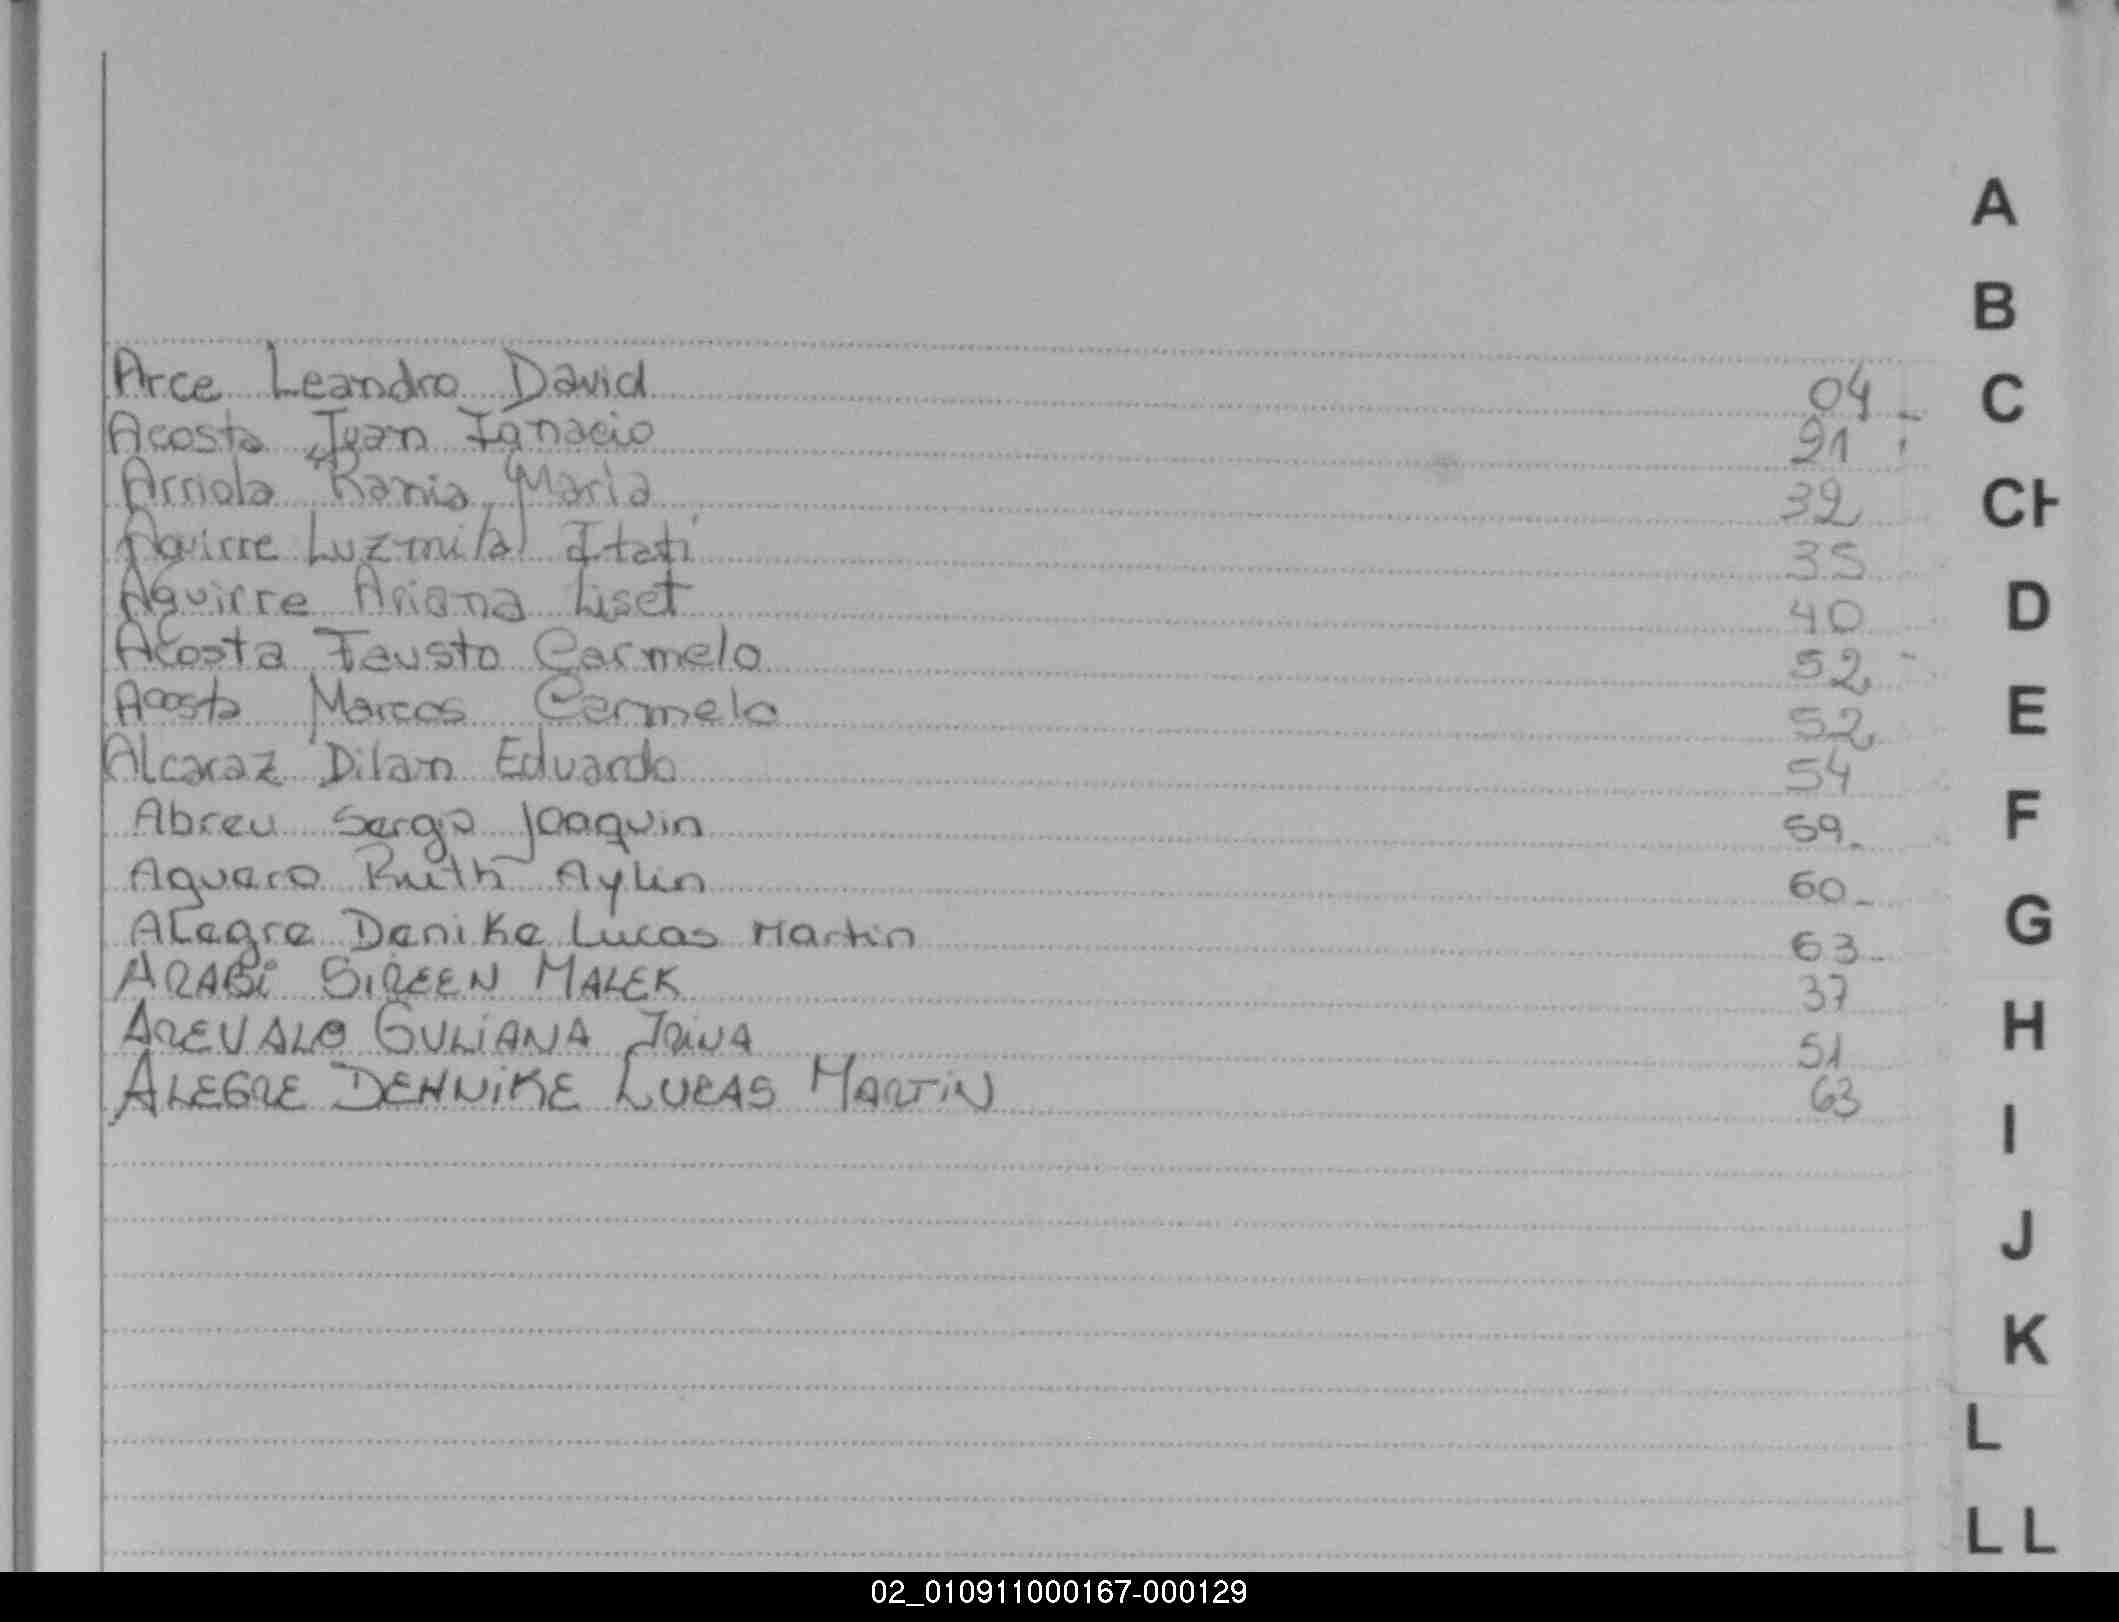 Arce Leandro David 04
Acosta Juan Ignacio 21
Arriola Rania Maria 32
Aguirre Luzmila Itati 35
Aguirre Ariana Liset 40
Acosta Fausto Carmelo 52
Acosta Marcos Carmelo 52
Alcaraz Dilan Eduardo 54
Abreu Sergio Joaquin 59.
Aguero Ruth Aylin 60-
Alegre Denike Lucas Martin 63-
ARABi SIREEN MALEK 37
AREVALO GULiANA IRiNA 51
ALEGRE DENNiKE LUCAS MARTiN 63
A
B
C
CH
D
E
F
G
H
I
J
K
L
LL
02_010911000167-000129